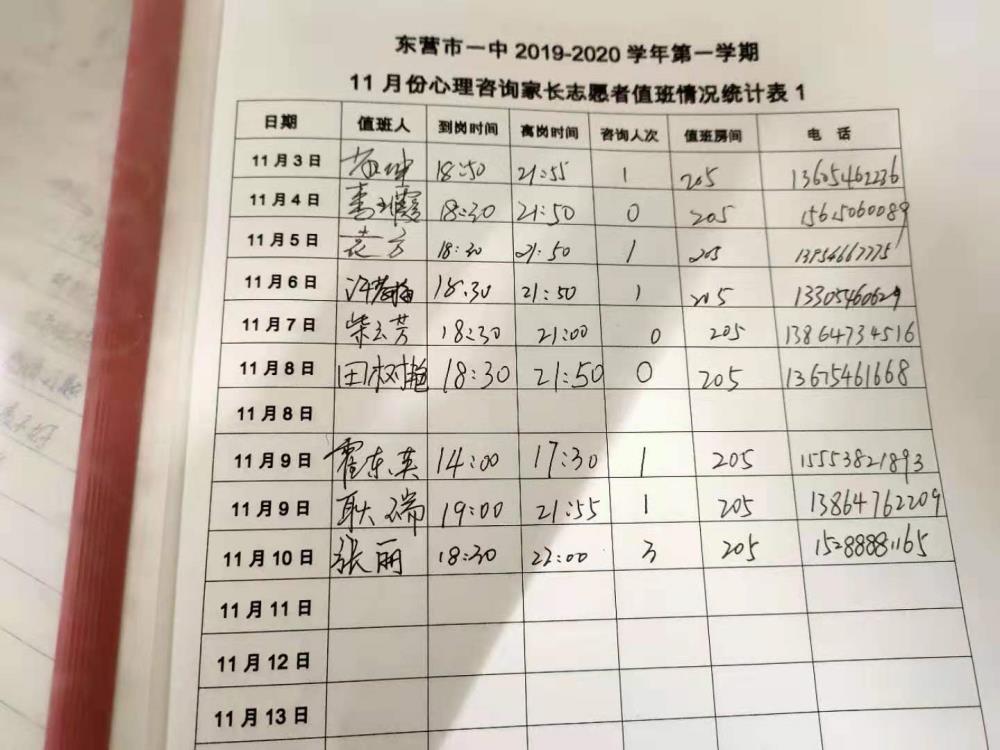 东营市一中 2019-2020 学年第一学期
11 月份心理咨询家长志愿者值班情况统计表 1
日期 值班人 到岗时间 离岗时间 咨询人次 值班房间 电 话
11 月 3 日 18:50 21:55 1 205 13605462236
11 月 4 日 18:30 21:50 0 205 15615060089
11 月 5 日 18:30 21:50 1 205
11 月 6 日 18:30 21:50 1 205 13305460629
11 月 7 日 柴云芳 18:30 21:00 0 205 13864734516
11 月 8 日 田树艳 18:30 21:50 0 205 13675461668
11 月 8 日
11 月 9 日 霍东英 14:00 17:30 1 205 15553821893
11 月 9 日 耿瑞 19:00 21:55 1 205 13864762209
11 月 10 日 张丽 18:30 22:00 3 205 15288881165
11 月 11 日
11 月 12 日
11 月 13 日